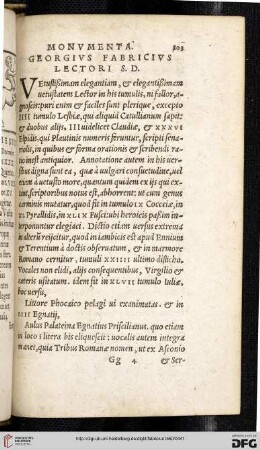 MONVMENTA. 103
GEORGIVS FABRICIVS
LECTORI S.D.
VEtustissimam elegantiam, & elegantissimam
uetustatem Lector in his tumulis, ni fallor, a-
gnosces: puri enim & faciles sunt plerique, excepto
IIII tumulo Lesbiæ, qui aliquid Catullianum sapit:
& duobus alijs, III uidelicet Claudiæ, & XXXVI
Elpidis, qui Plautinis numeris feruntur, scripti sena-
rijs, in quibus & forma orationis & scribendi ra-
tio inest antiquior. Annotatione autem in his uer-
sibus digna sunt ea, quæ à uulgari consuetudine, uel
etiam à uetusto more, quantum quidem ex ijs qui ex-
tant, scriptoribus notus est, abhorrent: ut cum genus
carminis mutatur, quod fit in tumulo IX Cocceiæ, in
IX Pyrallidis, in XLIX Fuscitubi heroicis passim in-
terponuntur elegiaci. Dictio etiam uersus extrema
in alterū reijcitur, quod in iambicis est apud Ennium
& Terentium à doctis obseruatum, & in marmore
Romano cernitur, tumuli XXIIII ultimo disticho.
Vocales non elidi, alijs consequentibus, Virgilio &
ceteris usitatum. idem fit in XLVII tumulo Iuliæ,
hoc uersu,
Littore Phocaico pelagi ui exanimatas. & in
IIII Egnatij,
Aulus Palatcina Egnatius Priscilianus. quo etiam
in loco s litera bis eliquescit: uocalis autem integra
manet, quia Tribus Romanæ nomen, ut ex Asconio
Gg 4 & Ser-
DFG